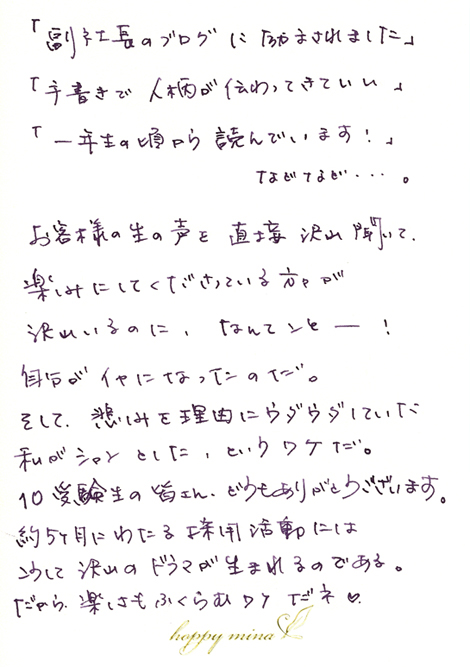 「副社長のブログにはげまされました」
「手書きで人柄が伝わってきていい」
「一年生の頃から読んでいます！」
などなど・・・。
お客様の生の声を直接沢山聞いて、
楽しみにしてくださっている方々が
沢山いるのに、なんてこと―！
自分がイヤになったのだ。
そして、悲しみを理由にウダウダしていた
私がシャンとした、というワケだ。
10受験生の皆さん、どうもありがとうございます。
約5ヶ月にわたる採用活動には
こうして沢山のドラマが生まれるのである。
だから、楽しさもふくらむワケだネ♡
happy mina